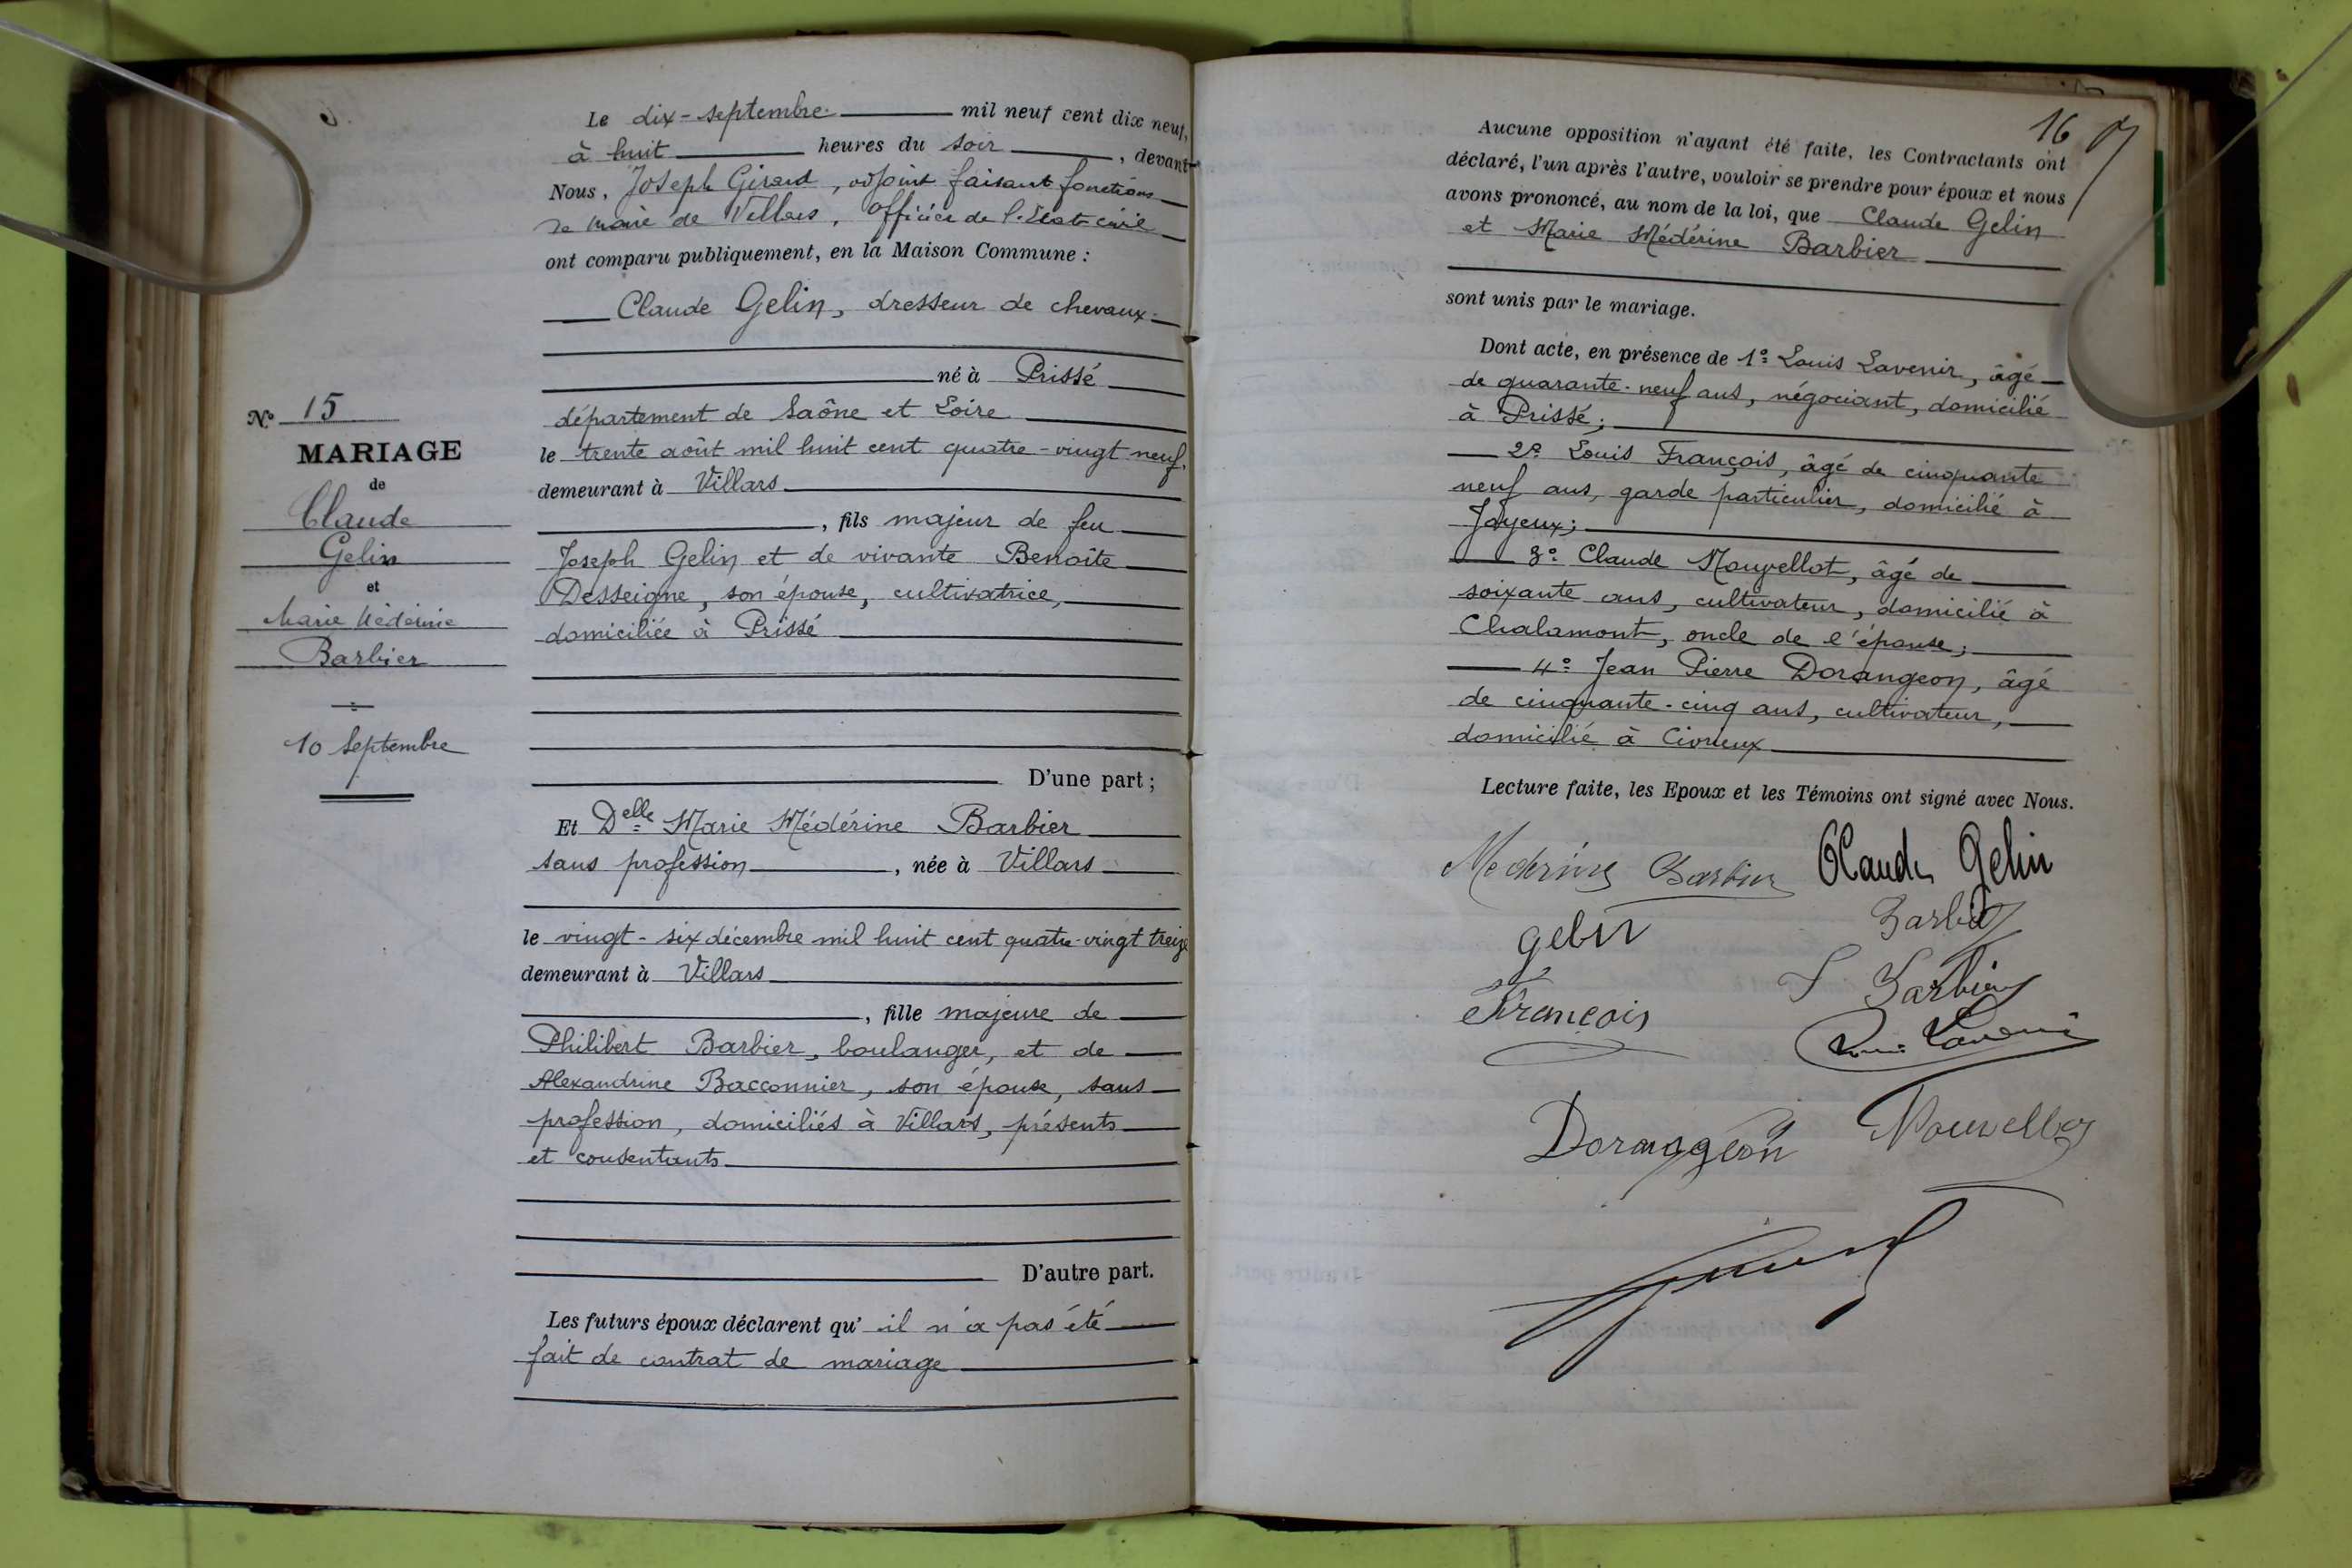 Le dix-septembre mil neuf cent dix neuf,
à huit heures du soir, devant
Nous, Joseph Girard, adjoint faisant fonctions
de maire de Villars, Officier de l'Etat civil
ont comparu publiquement, en la Maison Commune :
Claude Gelin, dresseur de chevaux
né à Prissé
département de Saône et Loire
le trente août mil huit cent quatre-vingt neuf,
demeurant à Villars
, fils majeur de feu
Joseph Gelin et de vivante Benoîte
Desseigne, son épouse, cultivatrice,
domiciliée à Prissé
D'une part ;
Et Delle Marie Médérine Barbier
sans profession, née à Villars
le vingt-six décembre mil huit cent quatre-vingt treize
demeurant à Villars
, fille majeure de
Philibert Barbier, boulanger, et de
Alexandrine Bacconnier, son épouse, sans
profession, domiciliés à Villars, présents
et consentants
D'autre part.
Les futurs époux déclarent qu'il n'a pas été
fait de contrat de mariage
No 15
MARIAGE
de
Claude
Gelin
et
Marie Médérine
Barbier
10 Septembre
16
Aucune opposition n'ayant été faite, les Contractants ont
déclaré, l'un après l'autre, vouloir se prendre pour époux et nous
avons prononcé, au nom de la loi, que Claude Gelin
et Marie Médérine Barbier
sont unis par le mariage.
Dont acte, en présence de 1º Louis Lavenir, âgé
de quarante-neuf ans, négociant, domicilié
à Prissé ;
2º Louis François, âgé de cinquante
neuf ans, garde particulier, domicilié à
Joyeux ;
3º Claude Nouvellot, âgé de
soixante ans, cultivateur, domicilié à
Chalamont, oncle de l'épouse ;
4º Jean Pierre Dorangeon, âgé
de cinquante-cinq ans, cultivateur,
domicilié à Civrieux
Lecture faite, les Epoux et les Témoins ont signé avec Nous.
Mederine Barbier Claude Gelin
Gelin Barbier
François Barbier
Louis Lavenir
Dorangeon Nouvellot